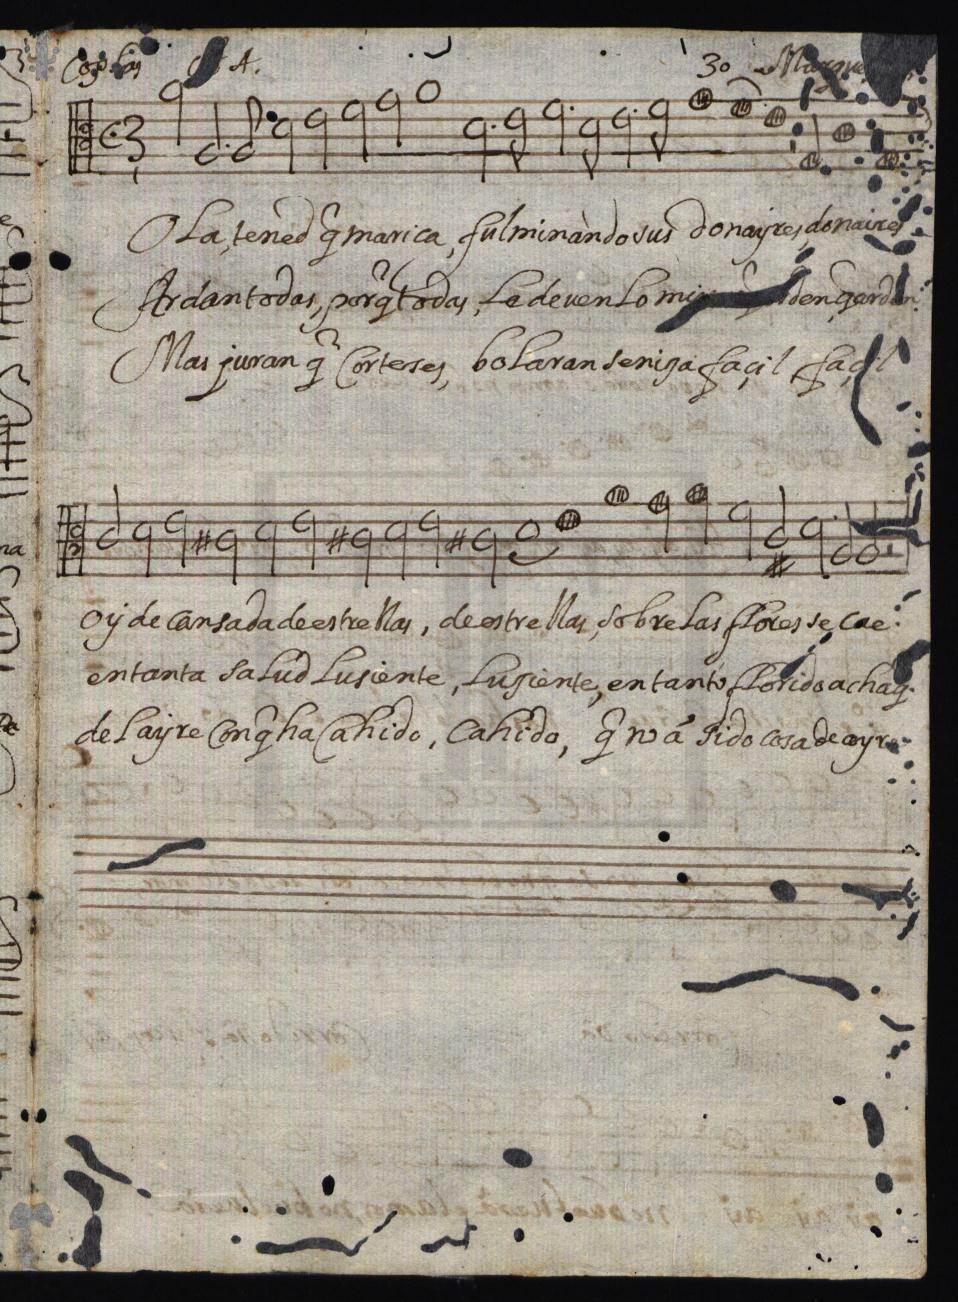 Coplas A. 30 Marques
3
O La, tened q̃ marica, fulminando sus donayres, donaires
Ardan todas, porq̃ todas, Le deven Lo mis arden q̃ arden
Mas juran q̃ Corteses, bolaran seniza façil façil
Oy de cansada de estrellas, de estrellas, sobre Las flores se cae.
en tanta saLud Lusiente, Lusiente, en tanto florido achaq̃.
deL ayre Con q̃ ha Cahido, Cahido, q̃ no á sido cosa de ayre